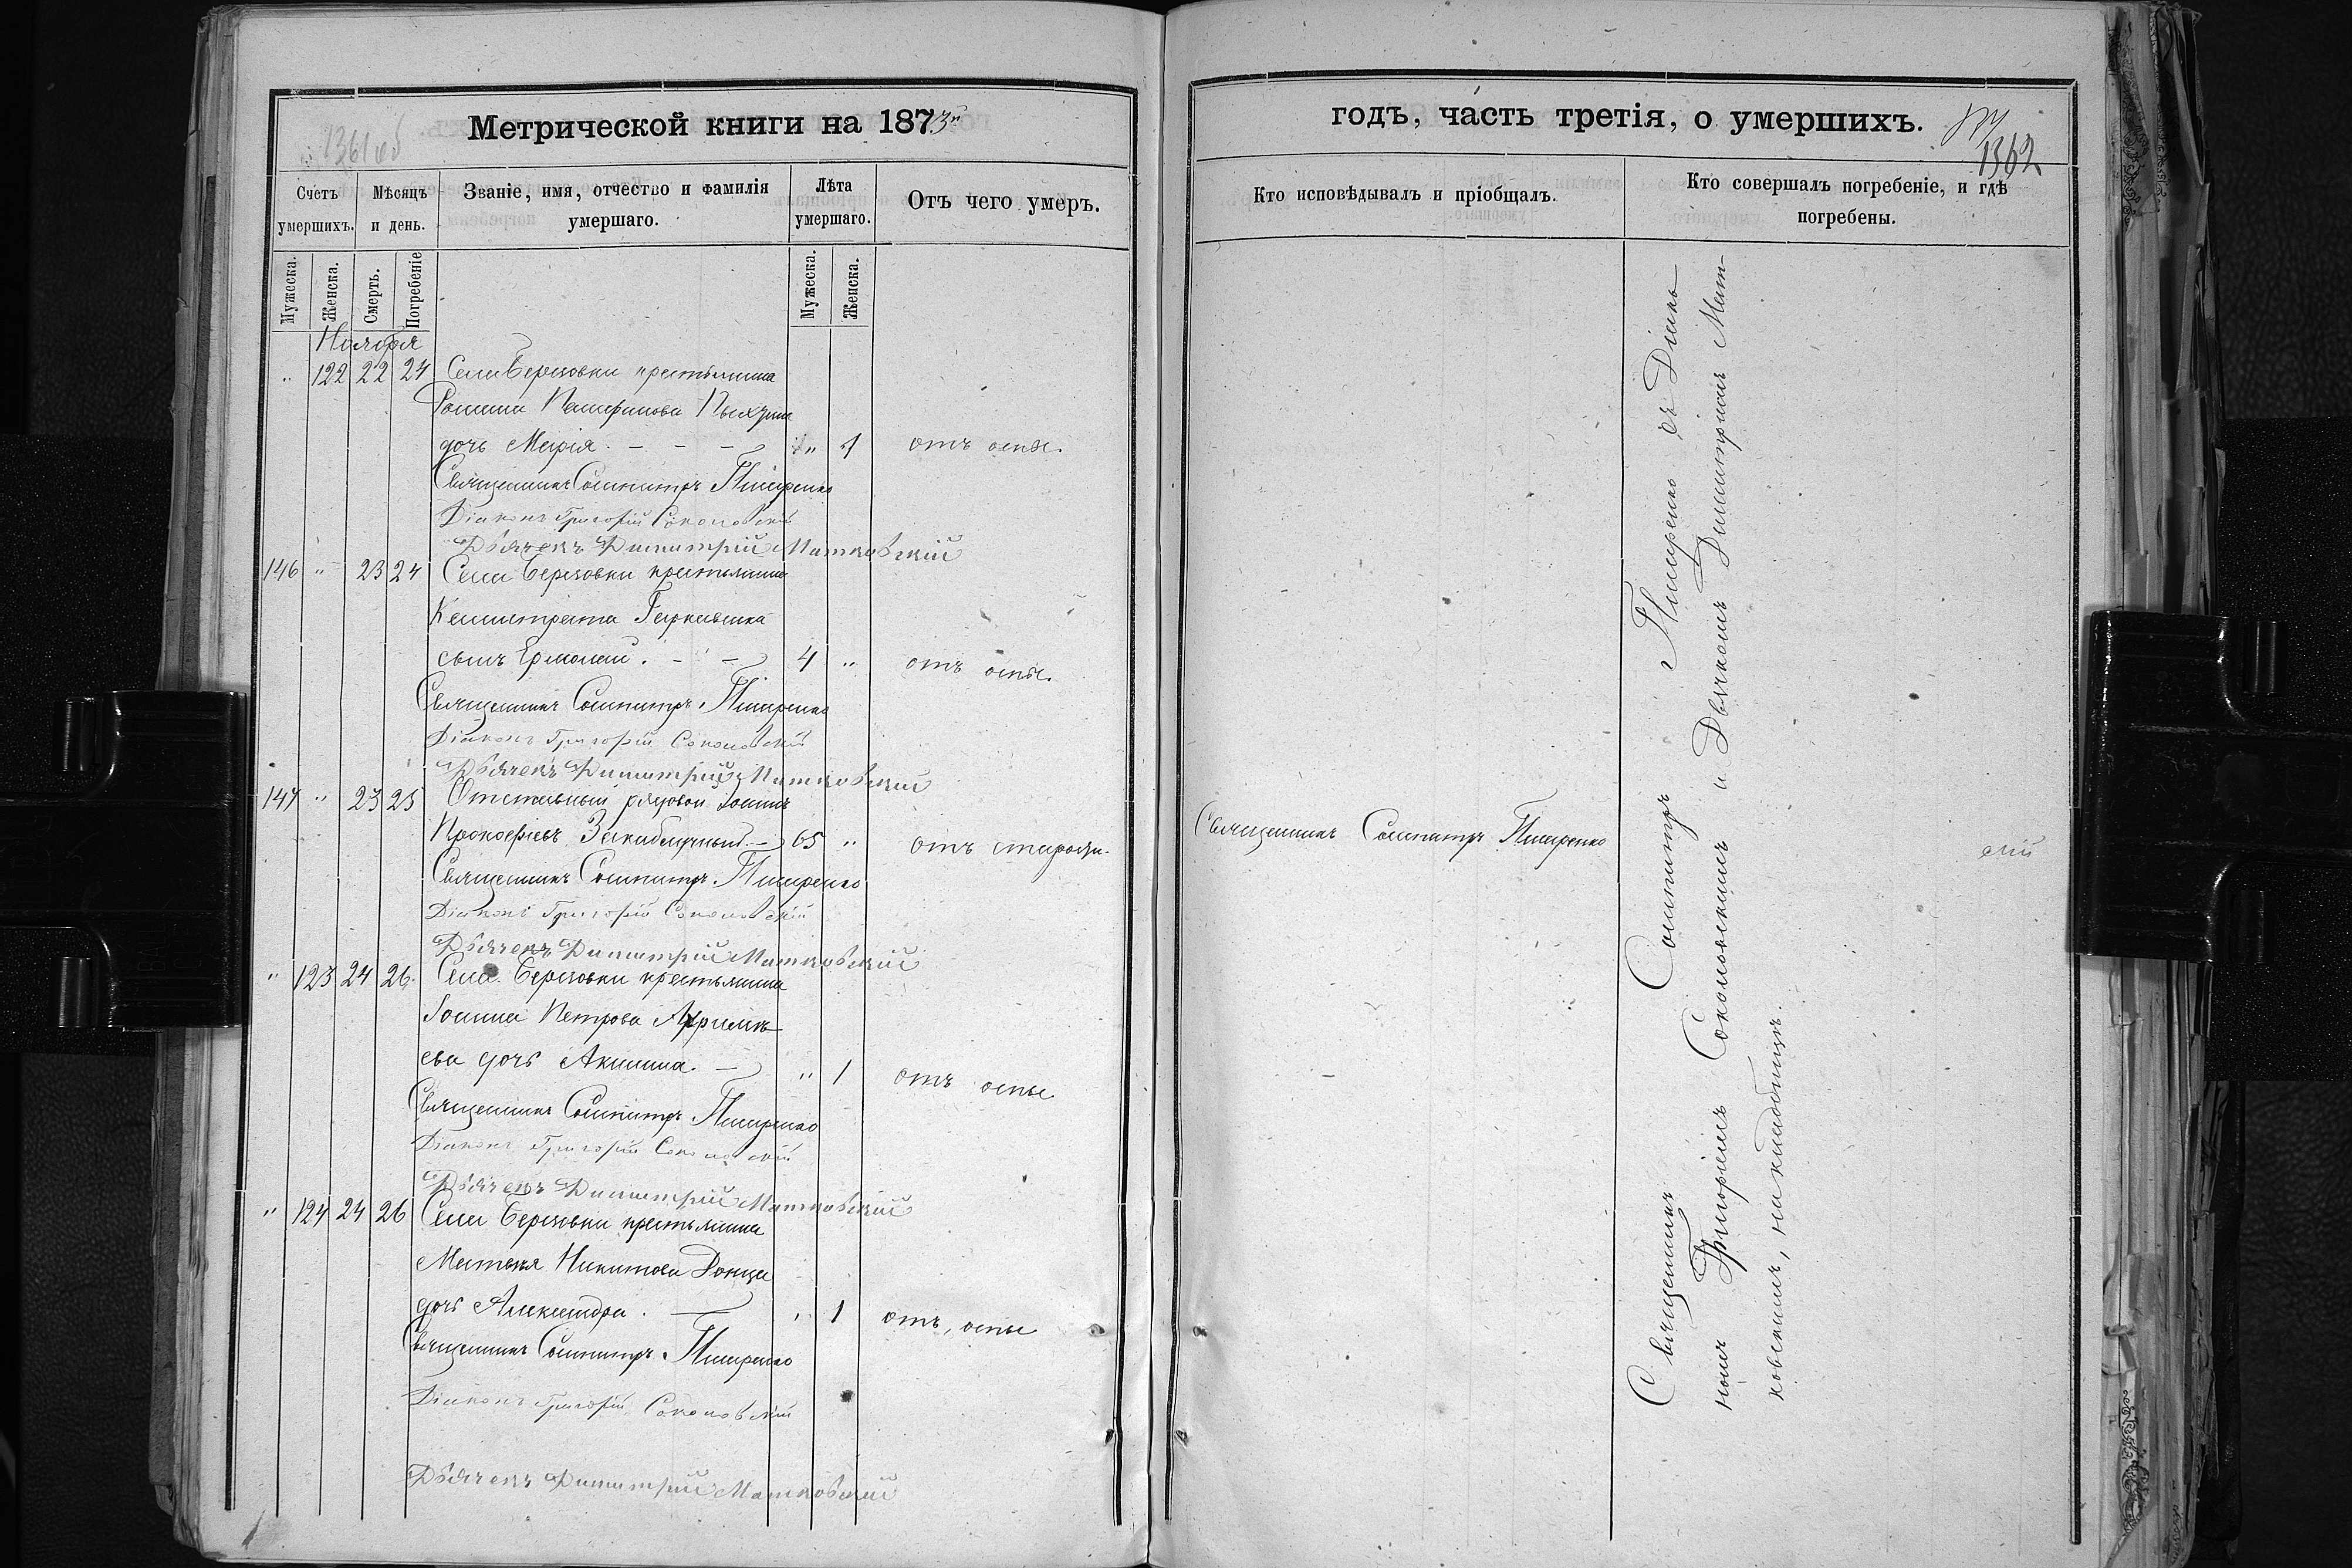 Метрической книги на 1873й
годъ, часть третія, о умершихъ.
1362
Счетъ умершихъ.
Мѣсяцъ и день.
Званіе, имя, отчество и фамилія умершаго.
Лѣта умершаго.
Отъ чего умеръ.
Кто исповѣдывалъ и пріобщалъ.
Кто совершалъ погребеніе, и гдѣ погребены.
Мужеска.
Женска.
Смерть.
Погребеніе
Мужеска.
Женска.
Ноября
" 122 22 24 Села Березовки крестьянина
Іоанна
дочь Марія. - - - " 1 отъ оспы.
Священникъ Сосипатръ Писаренко
Діаконъ Григорій Соколовскій
Дьячекъ Димитрій Матковскій
146 " 23 24 Села Березовки крестьянина
Калистрата
сынъ Ермолай. - - 4 " отъ оспы.
Священникъ Сосипатръ Писаренко
Діаконъ Григорій Соколовскій
Дьячекъ Димитрій Матковскій
147 " 23 25 Отставный рядовой Іоаннъ
Прокофіевъ - 65 " отъ старости.
Священникъ Сосипатръ Писаренко
Діаконъ Григорій Соколовскій
Дьячекъ Димитрій Матковскій
" 123 24 26 Села Березовки крестьянина
Іоанна Петрова
ева дочь Акилина. - " 1 отъ оспы
Священникъ Сосипатръ Писаренко
Діаконъ Григорій Соколовскій
Дьячекъ Димитрій Матковскій
" 124 24 26 Села Березовки крестьянина
Матвея Никитова Донца
дочь Александра. - " 1 отъ оспы
Священникъ Сосипатръ Писаренко
Діаконъ Григорій Соколовскій
Дьячекъ Димитрій Матковскій
Священникъ Сосипатръ Писаренко
Священникъ Сосипатръ Писаренко съ Діако
номъ Григоріемъ Соколовскимъ и Дьячкомъ Димитріемъ Мат-
ковскимъ, на кладбищѣ.